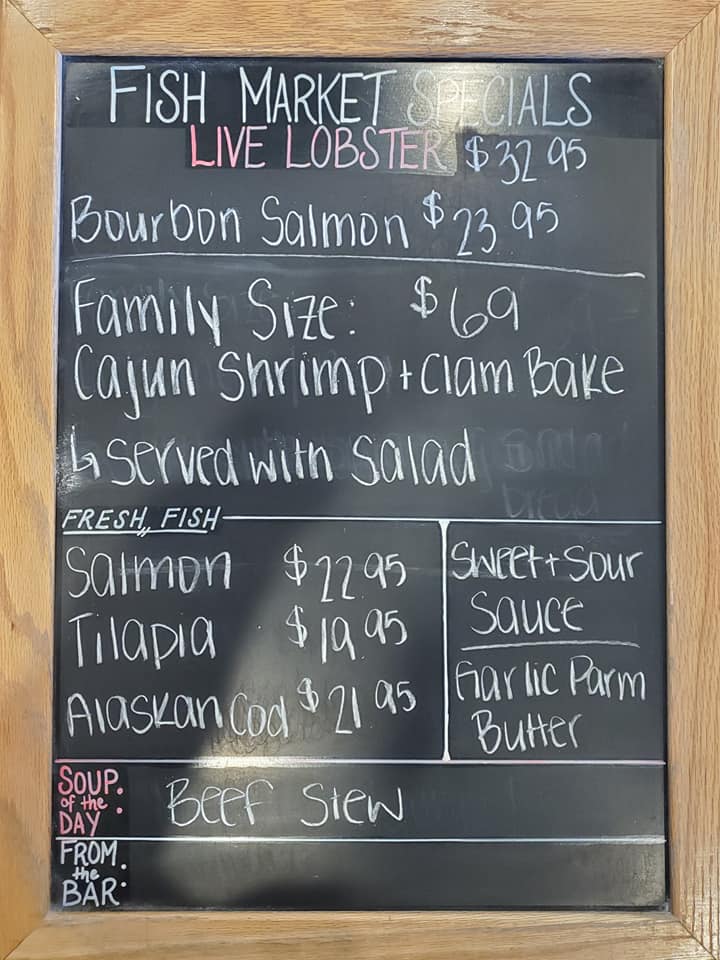 FISH MARKET SPECIALS
LIVE LOBSTER $32.95
Bourbon Salmon $23.95
Family Size: $69
Cajun Shrimp + Clam Bake
↳ Served with Salad
FRESH FISH
Salmon $22.95
Tilapia $19.95
Alaskan Cod $21.95
Sweet + Sour
Sauce
Garlic Parm
Butter
SOUP
of the
DAY:
Beef Stew
FROM
the
BAR: